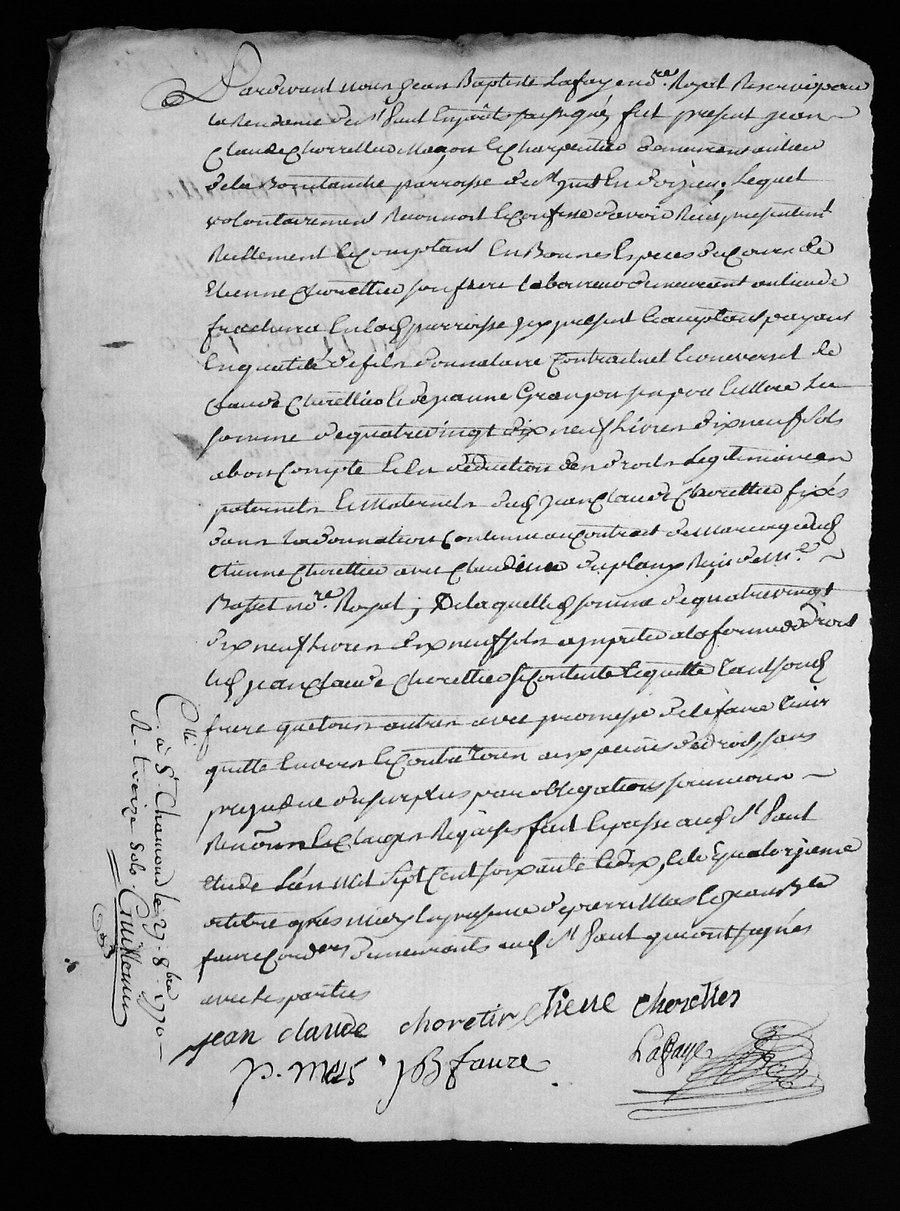 Pardevant nous Jean Baptiste Lafaye no.re Royal Reservé pour
la Residence de St Paul En Jarêts soussigné, fut present jean
Claude Chorellier Maçon & Charpentier demeurant au lieu
de la parroisse de St just En doizieu, Lequel
volontairement Reconnoit & Confesse d'avoir Receu presentement
Reellement & Comptant En Bonnes Especes du Cours de
Etienne Chorellier son frere laboureur demeurant au lieu de
En lad. parroisse icy present & acceptant payant
En qualité de fils donnataire Contractuel & universel de
Claude Chorellier & de jeanne Granjon son pere & Mere La
somme de quatrevingt dix neuf Livres dix neuf sols
abon Compte & En déduction des droits Legitimaires
paternels & Maternels dud. jean Claude Chorellier fixés
dans La donnation Contenue au Contrat de Mariage dud.
Etienne Chorellier avec Claudine duplany Reçu de Me.
Basset no.re Royal, De laquelle d. somme de quatrevingt
dix neuf Livres dix neuf sols a la forme de droit
led. jean Claude Chorellier se Contente & quitte tant sond.
frere que tous autres avec promesse de le faire tenir
quitte Envers & Contre tous aux peines de droit sans
prejudice du surplus par obligations soumissions
Renon.ons & Clauses Requises fait & passé aud. St Paul
Etude L'an Mil Sept Cent soixante & dix, & le quatorzieme
octobre après midy En presence de pierre Mas & jean B.te
faure Cord.ers demeurants aud. St Paul qui ont signés
avec les parties
jean claude choretir Etiene chorellier
p. mas jB faure Lafaye
C.lé
à St. Chamond le 27. 8bre 1770
R. treize sols. Guillemin